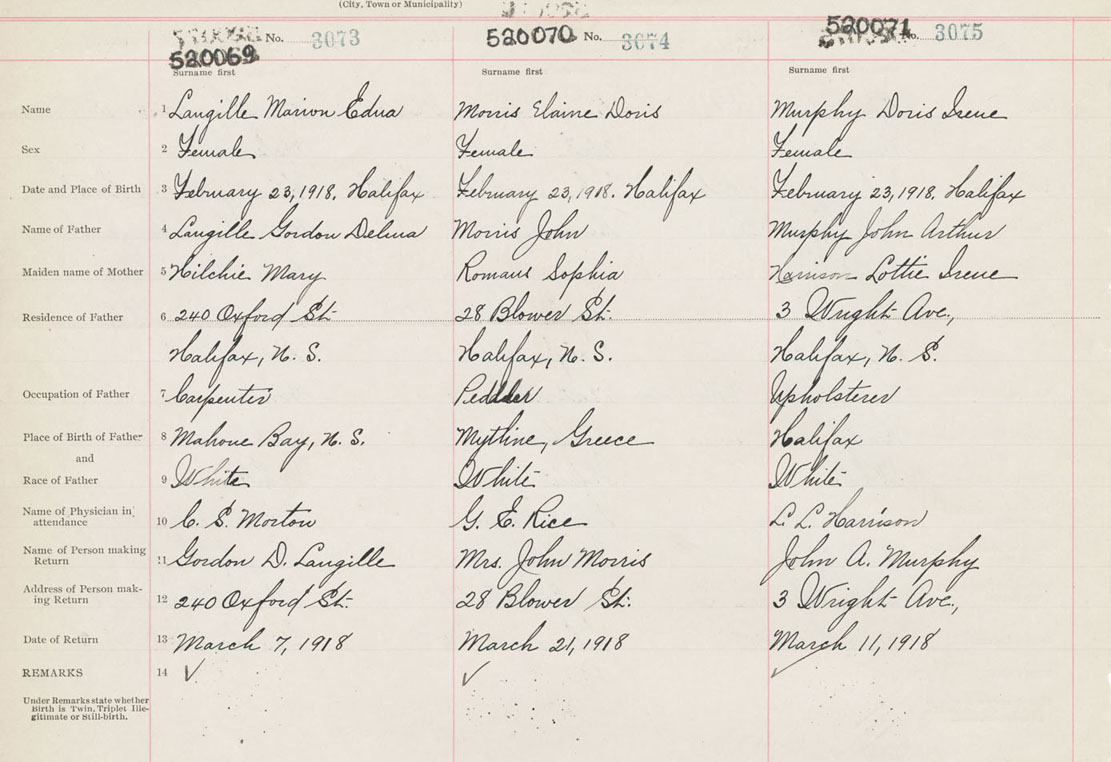 (City, Town or Municipality)
520069 No. 3073 520070 No. 3074 520071 No. 3075
Surname first Surname first Surname first
Name 1 Langille Marion Edna Morris Elaine Doris Murphy Doris Irene
Sex 2 Female Female Female
Date and Place of Birth 3 February 23, 1918. Halifax February 23, 1918. Halifax February 23, 1918. Halifax
Name of Father 4 Langille Gordon Delma Morris John Murphy John Arthur
Maiden name of Mother 5 Hilchie Mary Romans Sophia Harrison Lottie Irene
Residence of Father 6 240 Oxford St. 28 Blower St. 3 Wright Ave.,
Halifax, N. S. Halifax, N. S. Halifax, N. S.
Occupation of Father 7 Carpenter Peddler Upholsterer
Place of Birth of Father 8 Mahone Bay, N. S. Mytline, Greece Halifax
and
Race of Father 9 White White White
Name of Physician in attendance 10 C. S. Morton G. E. Rice L. L. Harrison
Name of Person making Return 11 Gordon D. Langille Mrs. John Morris John A. Murphy
Address of Person mak-ing Return 12 240 Oxford St. 28 Blower St. 3 Wright Ave.,
Date of Return 13 March 7, 1918 March 21, 1918 March 11, 1918
REMARKS 14 ✓ ✓ ✓
Under Remarks state whether
Birth is Twin, Triplet Ille-
gitimate or Still-birth.